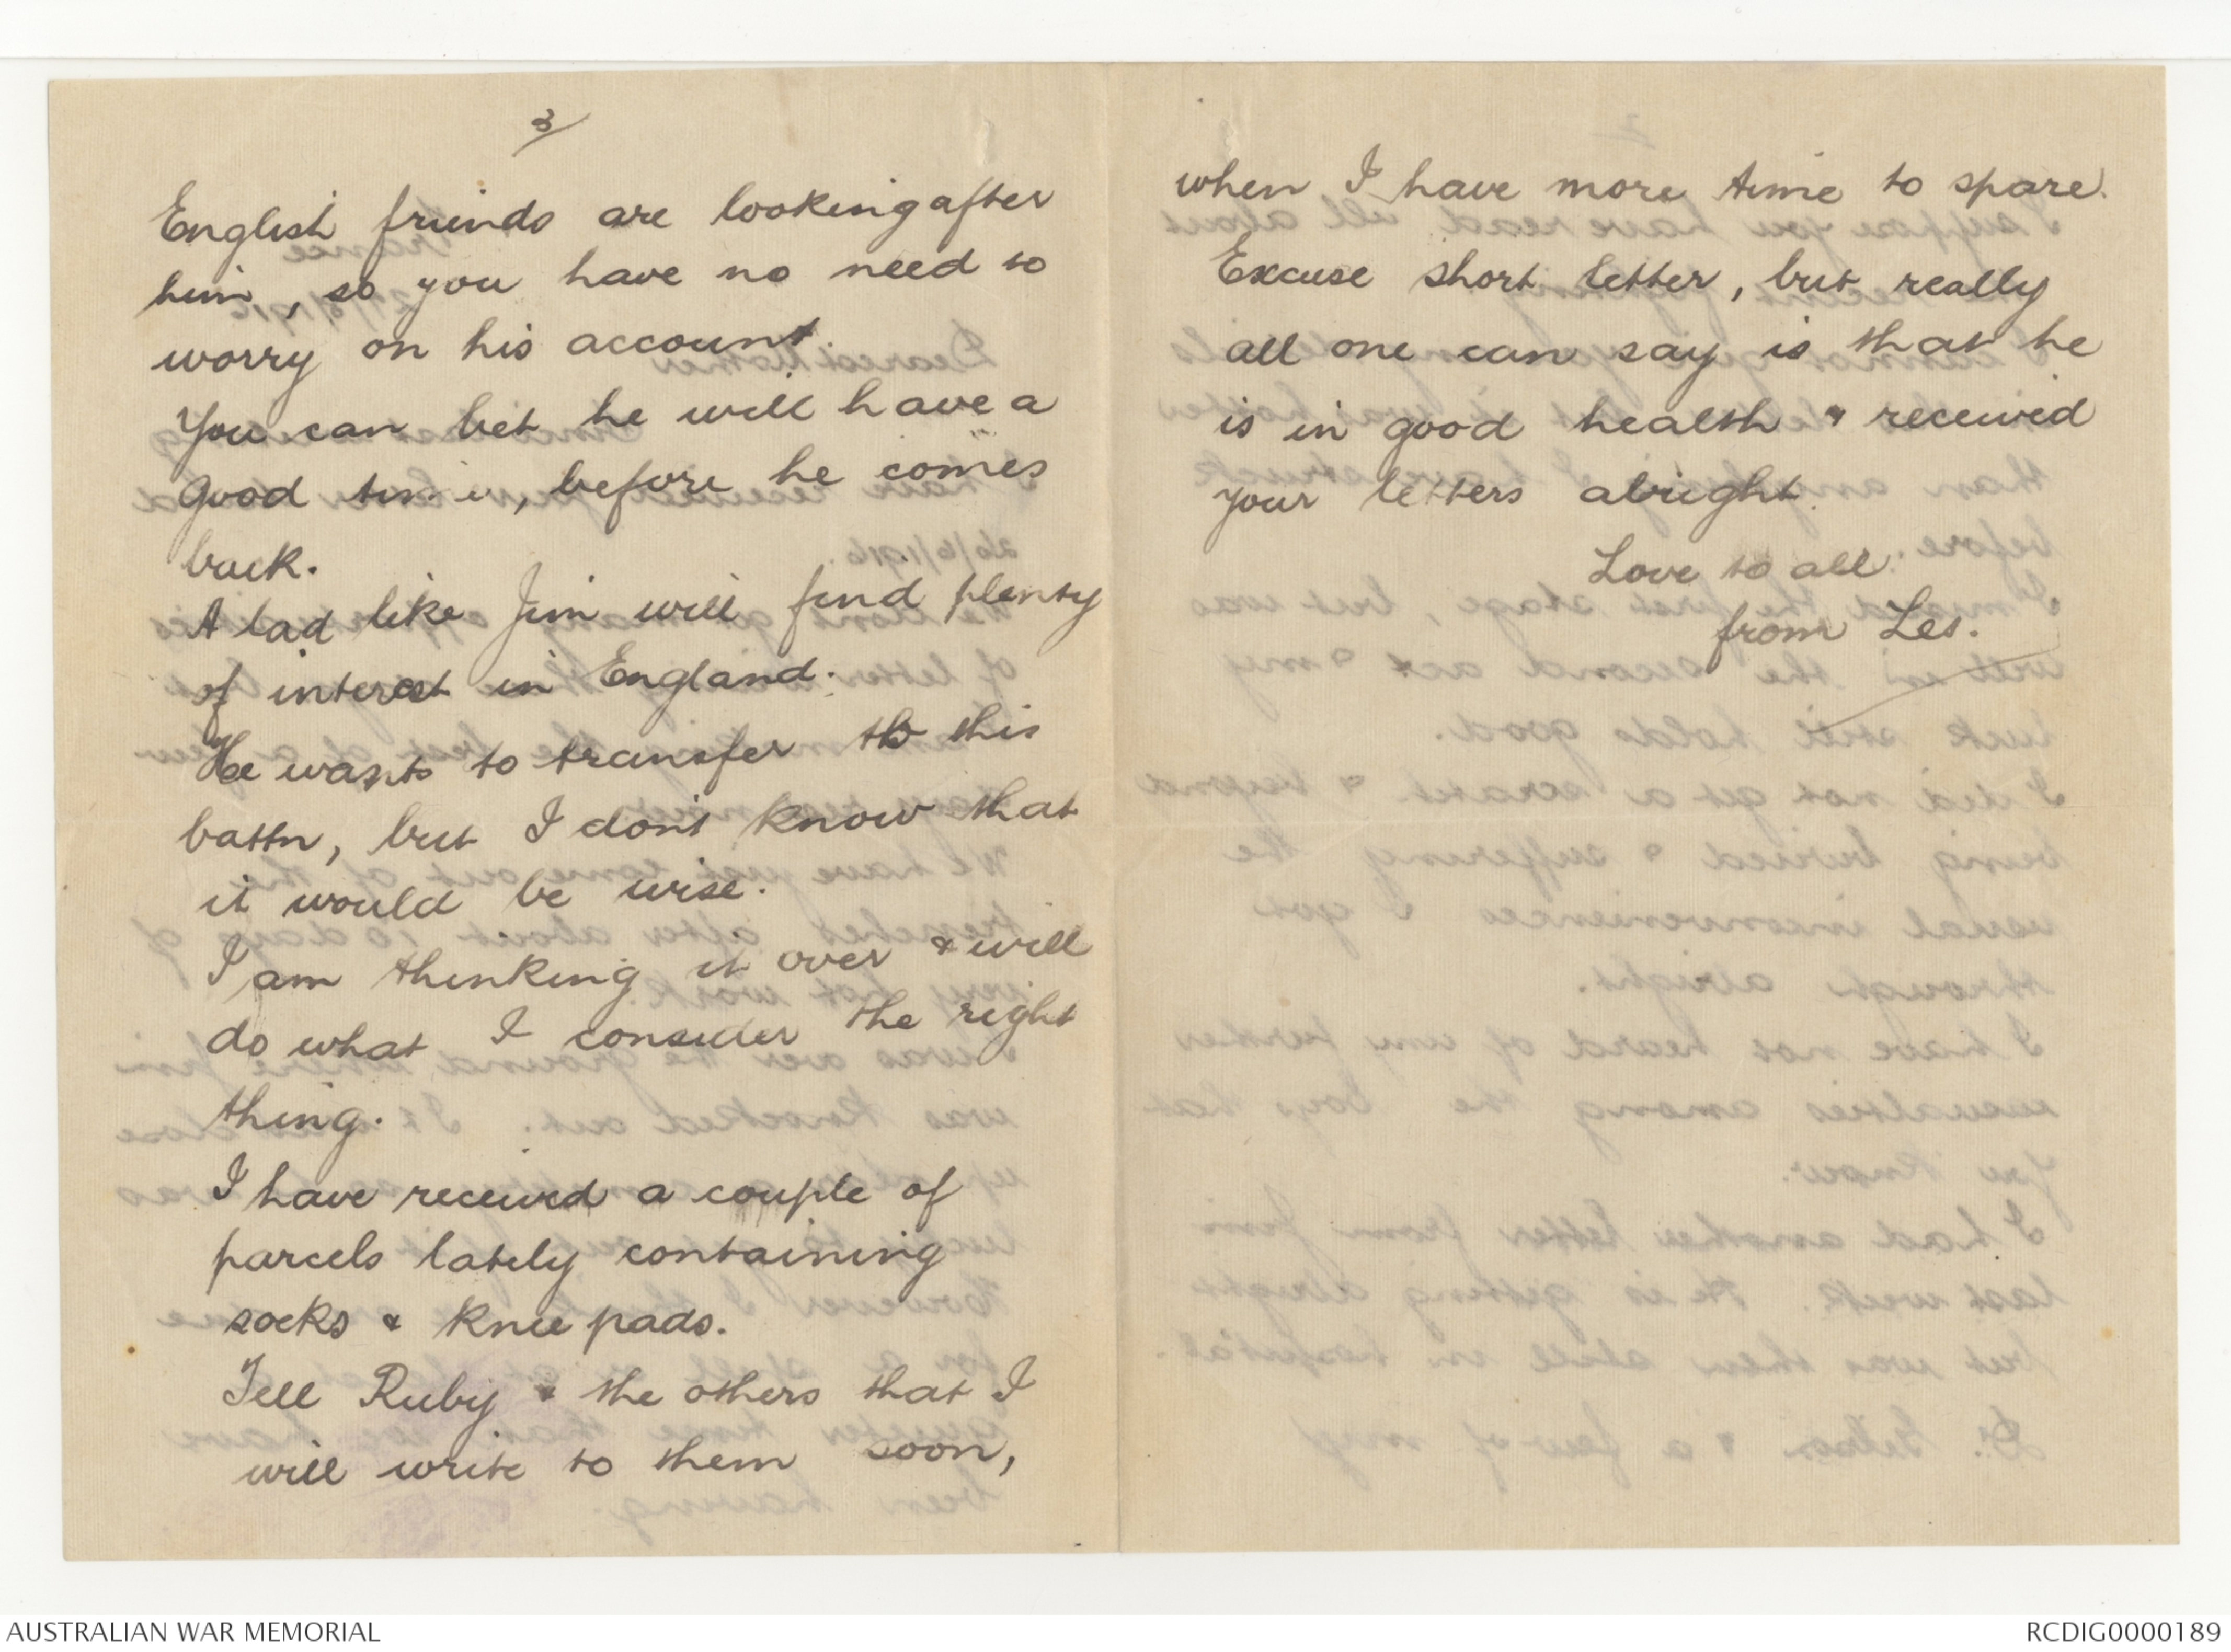 3/
English friends are looking after
him, so you have no need to
worry on his account.
You can bet he will have a
good time, before he comes
back.
A lad like Jim will find plenty
of interest in England.
He wants to transfer to this
battn, but I dont know that
it would be wise.
I am thinking it over & will
do what I consider the right
thing.
I have received a couple of
parcels lately containing
socks & knee pads.
Tell Ruby & the others that I
will write to them soon,
when I have more time to spare.
Excuse short letter, but really
all one can say is that he
is in good health & received
your letters alright.
Love to all.
from Les.
AUSTRALIAN WAR MEMORIAL
RCDIG0000189